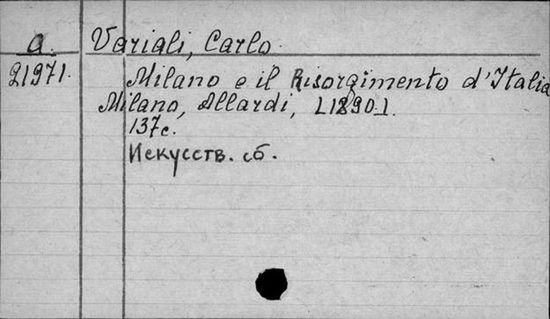 a. Variali, Carlo
21971. Milano e il Risorgimento d'Italia
Milano, Allardi, [1890].
137c.
Искусств. сб.